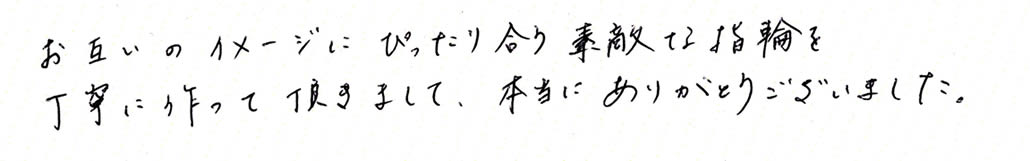 お互いのイメージにぴったり合う素敵な指輪を
丁寧に作って頂きまして、本当にありがとうございました。